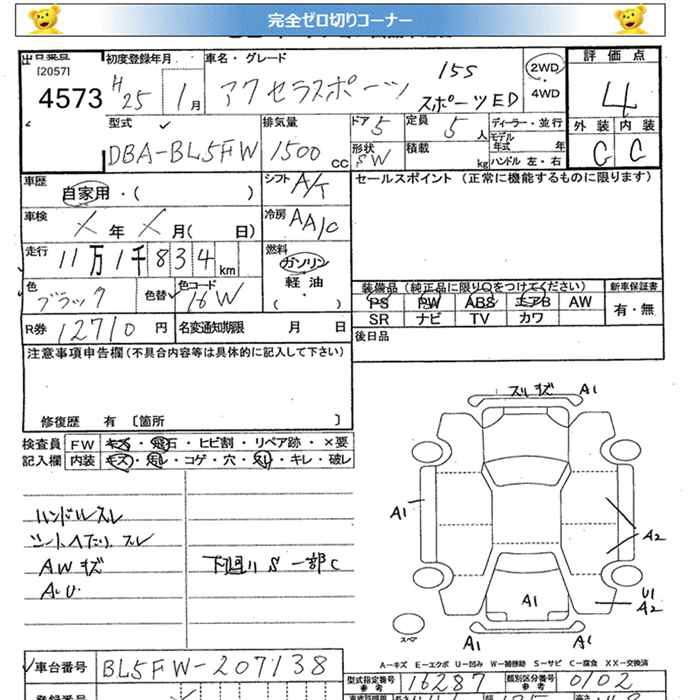 完全ゼロ切りコーナー
出品番号 [2057] 4573
初度登録年月 H25 1月
車名・グレード アクセラスポーツ 15S スポーツED
2WD
4WD
評価点 4
外装 内装
C C
型式 DBA-BL5FW
排気量 1500 CC
ドア 5 形状 SW
定員 5人
積載 kg
ディーラー・並行
モデル年式 年
ハンドル 左・右
車歴 自家用・( )
車検 X年X月( 日)
走行 11万1千834km
色 ブラック 色替 色コード 16W
シフト A/T
冷房 AAC
燃料 ガソリン 軽油・( )
セールスポイント (正常に機能するものに限ります)
装備品 (純正品に限り○をつけてください)
PS PW ABS エアB AW
SR ナビ TV カワ
新車保証書 有・無
後日品
R券 12710円
名変通知期限 月 日
注意事項申告欄(不具合内容等は具体的に記入して下さい)
修復歴 有 〔箇所 〕
検査員 FW キズ・飛石・ヒビ割・リペア跡・×要
記入欄 内装 キズ・汚レ・コゲ・穴・スレ・キレ・破レ
ハンドルスレ
シートヘたり、スレ
AWキズ
A.U.
下廻りS 一部C
スリキズ A1
A1
A2
U1
A2
A1
A1
A1
スペア
A-キズ E-エクボ U-凹み W-補修跡 S-サビ C-腐食 XX-交換済
車台番号 BL5FW-207138
型式指定番号 参考 16287
類別区分番号 参考 0102